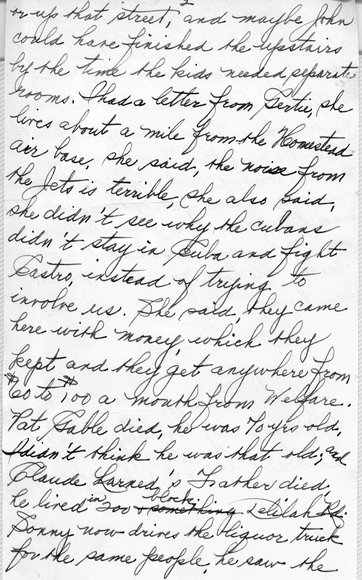 2
or up that street, and maybe John
could have finished the upstairs
by the time the kids needed separate
rooms. I had a letter from Gertie, she
lives about a mile from the Homestead
air base, she said, the noise from
the Jets is terrible, she also said,
she didn't see why the cubans
didn't stay in Cuba and fight
Castro, instead of trying to
involve us. She said, they came
here with money, which they
kept and they get anywhere from
$60 to $100 a month from Welfare.
Pat Gable died, he was 70 yrs old,
I didn't think he was that old, and
Claude Larned's Father died,
he lived in 200 block Delilah Rd.
Sonny now drives the liquor truck
for the same people, he saw the